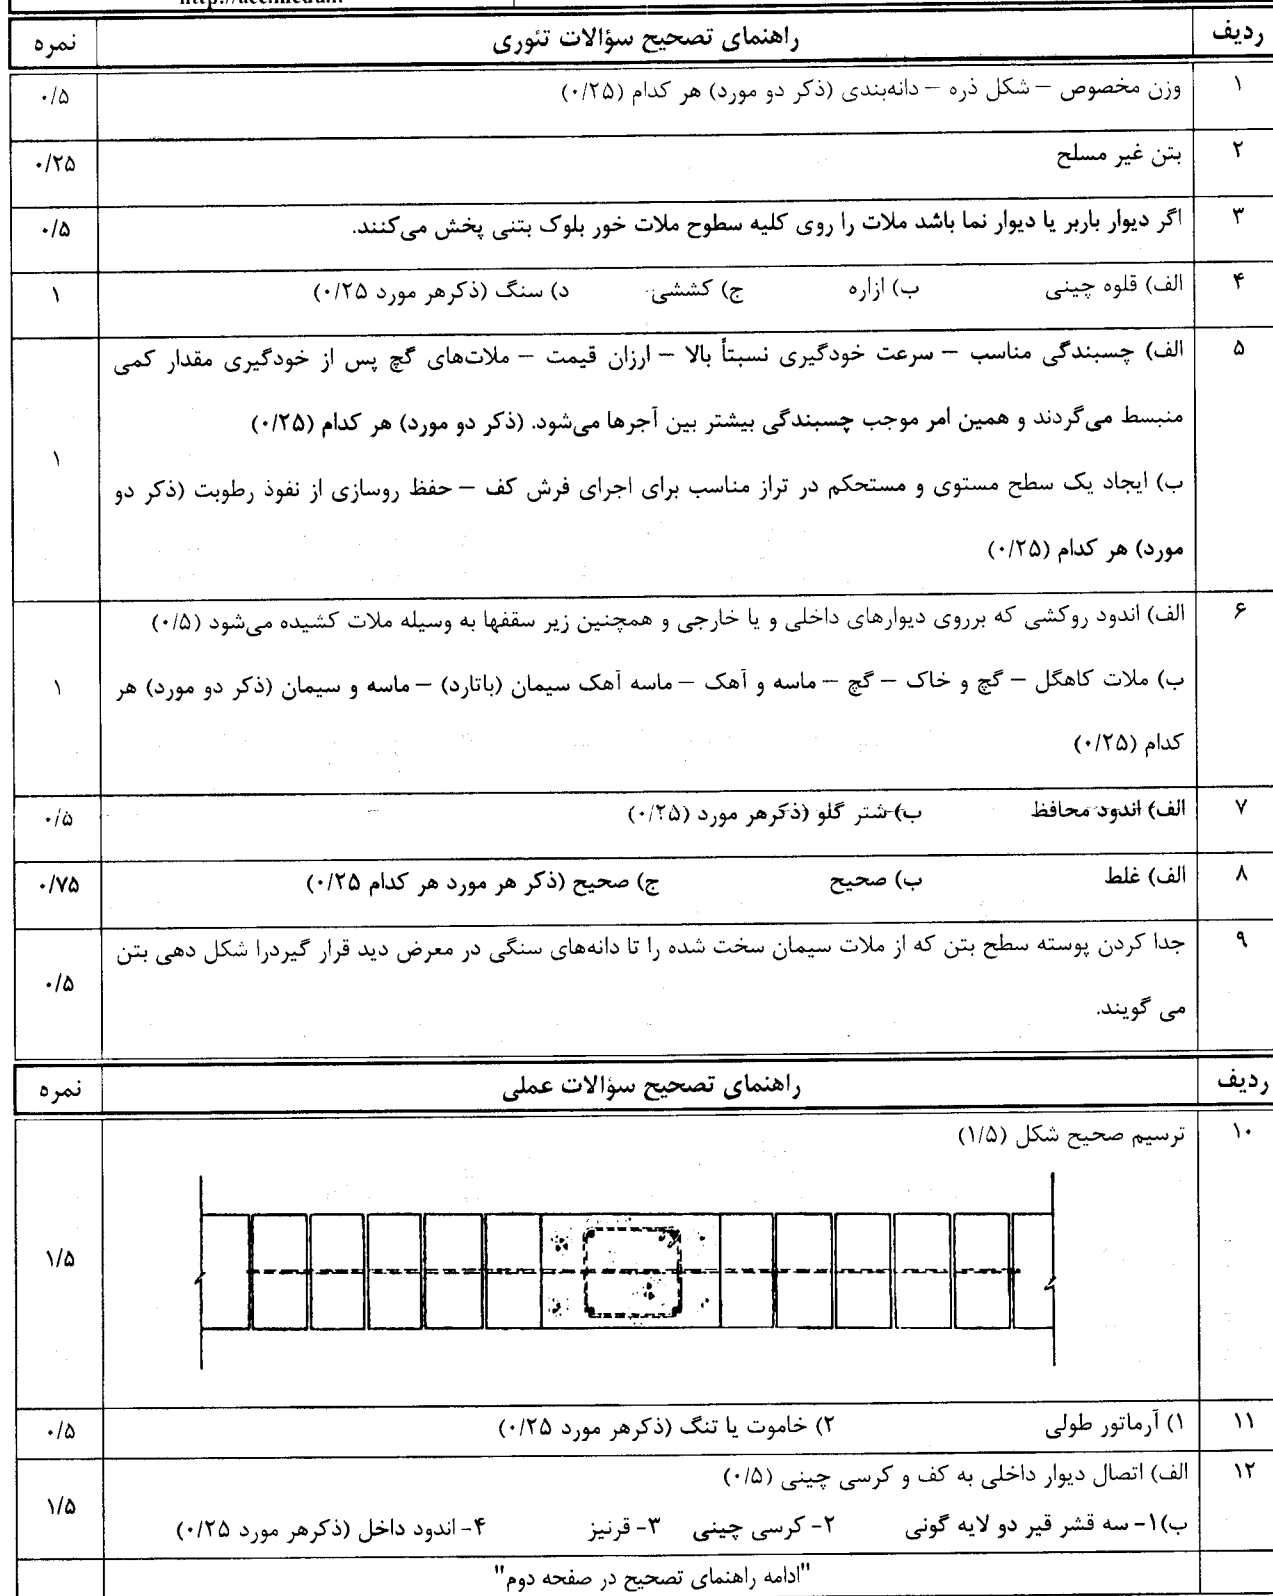 ردیف راهنمای تصحیح سؤالات تئوری نمره
۱ وزن مخصوص – شکل ذره – دانه‌بندی (ذکر دو مورد) هر کدام (۰/۲۵) ۰/۵
۲ بتن غیر مسلح ۰/۲۵
۳ اگر دیوار باربر یا دیوار نما باشد ملات را روی کلیه سطوح ملات خور بلوک بتنی پخش می‌کنند. ۰/۵
۴ الف) قلوه چینی ب) ازاره ج) کششی د) سنگ (ذکرهر مورد ۰/۲۵) ۱
۵ الف) چسبندگی مناسب – سرعت خودگیری نسبتاً بالا – ارزان قیمت – ملات‌های گچ پس از خودگیری مقدار کمی
منبسط می‌گردند و همین امر موجب چسبندگی بیشتر بین آجرها می‌شود. (ذکر دو مورد) هر کدام (۰/۲۵)
۱
ب) ایجاد یک سطح مستوی و مستحکم در تراز مناسب برای اجرای فرش کف – حفظ روسازی از نفوذ رطوبت (ذکر دو
مورد) هر کدام (۰/۲۵)
۶ الف) اندود روکشی که برروی دیوارهای داخلی و یا خارجی و همچنین زیر سقفها به وسیله ملات کشیده می‌شود (۰/۵)
ب) ملات کاهگل – گچ و خاک – گچ – ماسه و آهک – ماسه آهک سیمان (باتارد) – ماسه و سیمان (ذکر دو مورد) هر ۱
کدام (۰/۲۵)
۷ الف) اندود محافظ ب) شتر گلو (ذکرهر مورد (۰/۲۵) ۰/۵
۸ الف) غلط ب) صحیح ج) صحیح (ذکر هر مورد هر کدام ۰/۲۵) ۰/۷۵
۹ جدا کردن پوسته سطح بتن که از ملات سیمان سخت شده را تا دانه‌های سنگی در معرض دید قرار گیردرا شکل دهی بتن
می گویند. ۰/۵
ردیف راهنمای تصحیح سؤالات عملی نمره
۱۰ ترسیم صحیح شکل (۱/۵)
۱/۵
۱۱ ۱) آرماتور طولی ۲) خاموت یا تنگ (ذکرهر مورد ۰/۲۵) ۰/۵
۱۲ الف) اتصال دیوار داخلی به کف و کرسی چینی (۰/۵)
ب)۱- سه قشر قیر دو لایه گونی ۲- کرسی چینی ۳- قرنیز ۴- اندود داخل (ذکرهر مورد ۰/۲۵) ۱/۵
"ادامه راهنمای تصحیح در صفحه دوم"